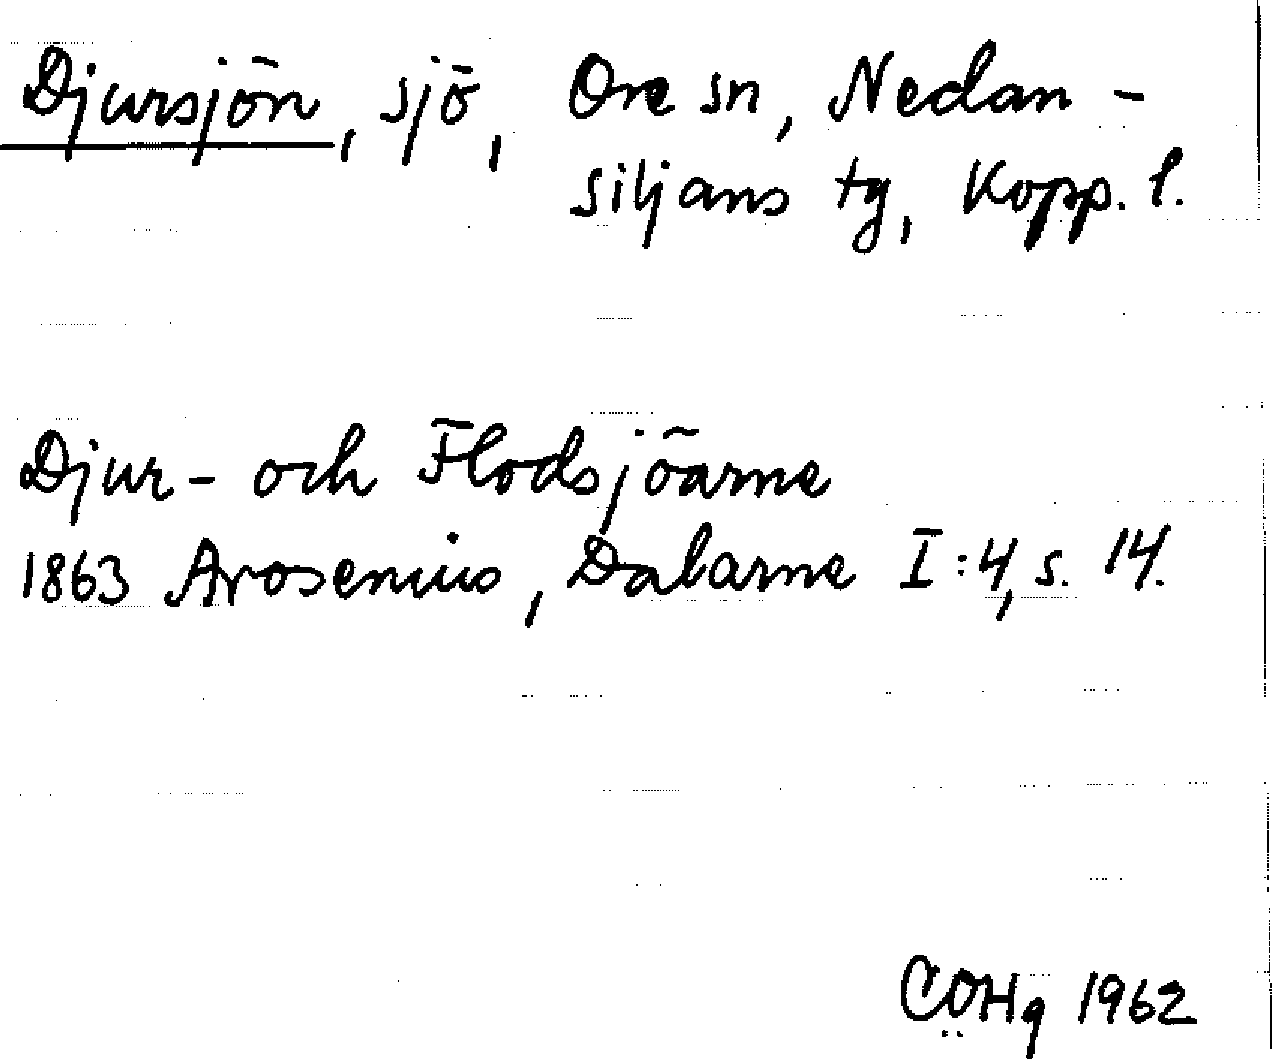 Djursjön, sjö, Ore sn, Nedan-
siljans tg, Kopp. l.
Djur- och Flodsjöarne
1863 Arosenius, Dalarne I:4, s. 14.
CÖHg 1962